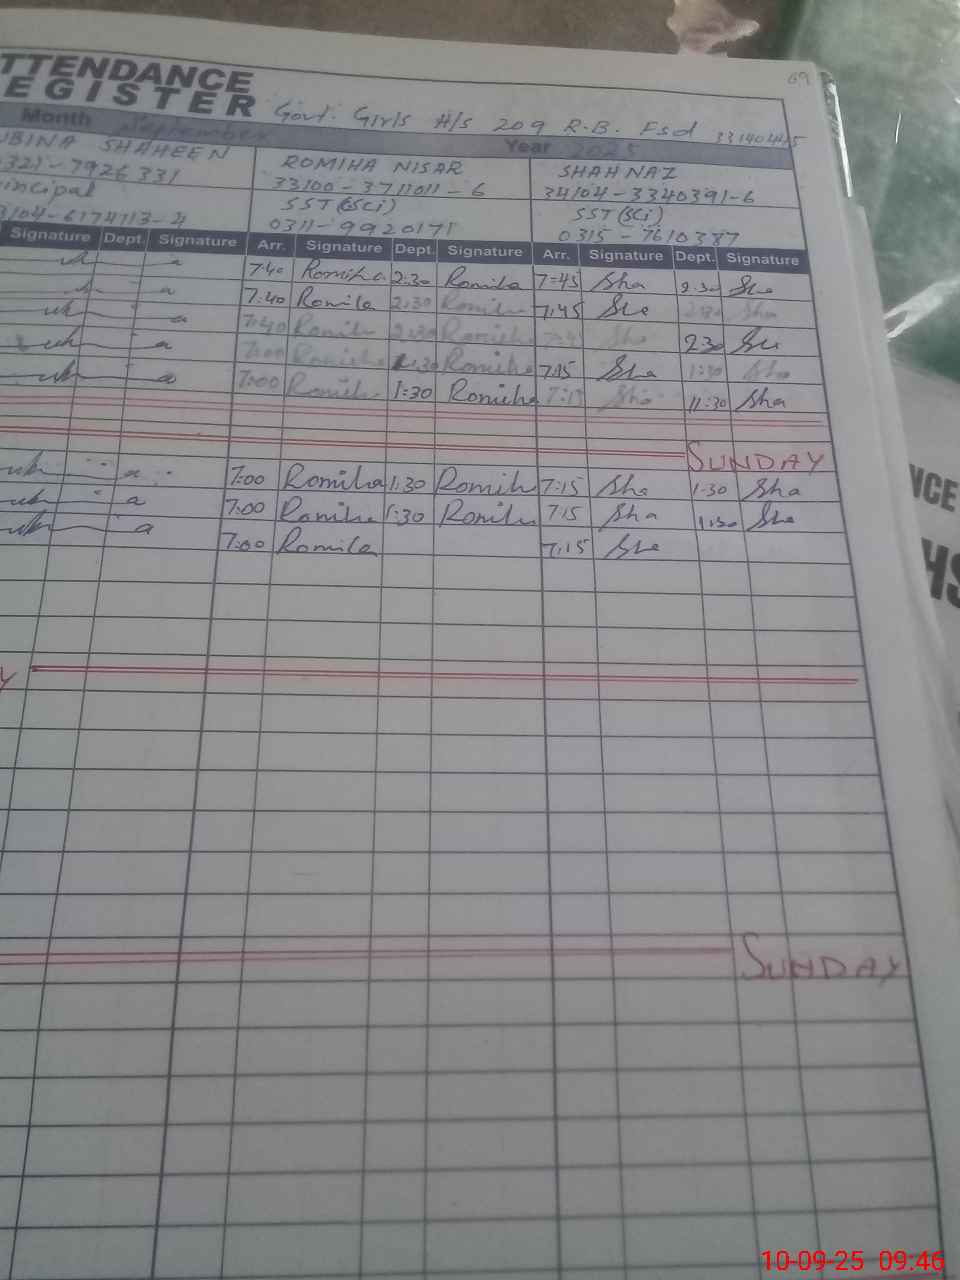 69
TTENDANCE
EGISTER Govt. Girls H/S 209 R.B. Fsd 33140445
Month September Year 2025
UBINA SHAHEEN ROMIHA NISAR SHAHNAZ
321-7926331 33100-3711011-6 34104-3340391-6
incipal SST (Sci) SST (Sci)
3104-6174713-4 0311-9920171 0315-7610387
Signature Dept. Signature Arr. Signature Dept. Signature Arr. Signature Dept. Signature
a 7:40 Romiha 2:30 Romiha 7:45 Sha 2:30 Sha
a 7:40 Romiha 2:30 Romiha 7:45 Sha 2:30 Sha
a 7:40 Romiha 2:30 Romiha Sha 2:30 Sha
a 7:00 Romiha 1:30 Romiha 7:15 Sha 1:30 Sha
a 7:00 Romiha 1:30 Romiha 7:15 Sha 11:30 Sha
SUNDAY
a 7:00 Romiha 1:30 Romiha 7:15 Sha 1:30 Sha
a 7:00 Romiha 1:30 Romiha 7:15 Sha 1:30 Sha
a 7:00 Romiha 7:15 Sha
Y
SUNDAY
NCE
HS
10-09-25 09:46